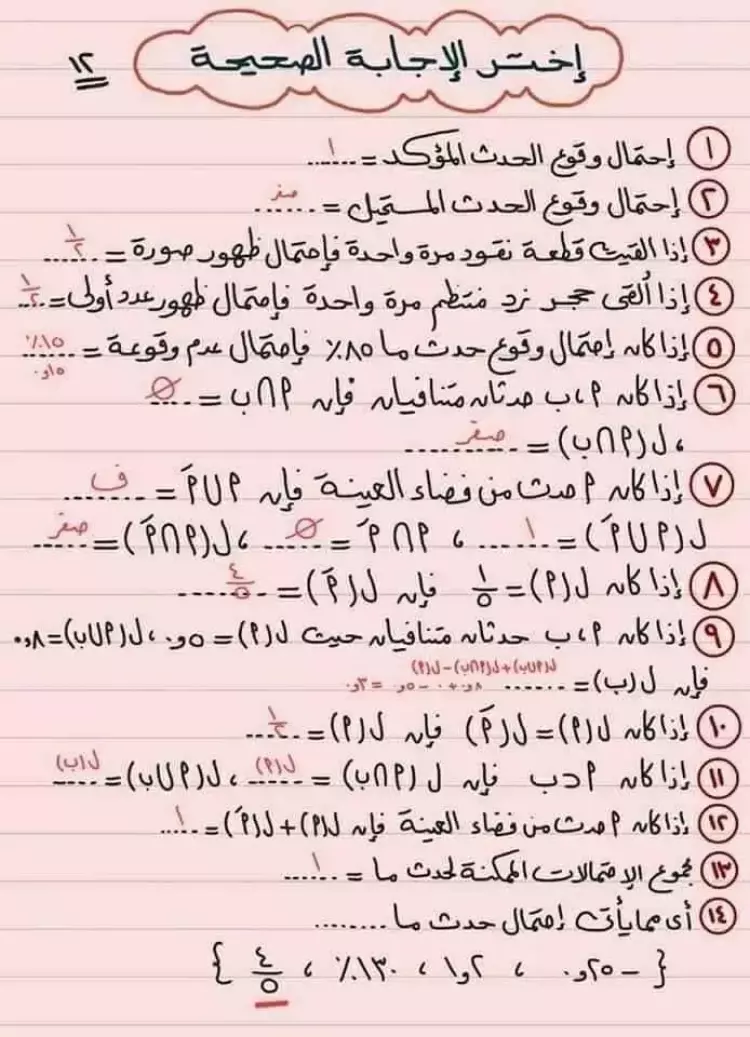 إختر الإجابة الصحيحة
١٢
١ إحتمال وقوع الحدث المؤكد = ...١...
٢ إحتمال وقوع الحدث المستحيل = ...صفر...
٣ إذا القيت قطعة نقود مرة واحدة فإحتمال ظهور صورة = ...١/٢...
٤ إذا ألقى حجر نرد منتظم مرة واحدة فإحتمال ظهور عدد أولى = ...١/٢...
٥ إذا كان إحتمال وقوع حدث ما ٨٥٪ فإحتمال عدم وقوعة = ...١٥٪...
١٥و.
٦ إذا كان ٢، ب حدثان متنافيان فإن ٢ ∩ ب = ...∅...
، ل(٢ ∩ ب) = ...صفر...
٧ إذا كان ٢ حدث من فضاء العينة فإن ٢ ∪ ٢َ = ...ف...
ل(٢ ∪ ٢َ) = ...١... ، ٢ ∩ ٢َ = ...∅... ، ل(٢ ∩ ٢َ) = ...صفر...
٨ إذا كان ل(٢) = ١/٥ فإن ل(٢َ) = ...٤/٥...
٩ إذا كان ٢، ب حدثان متنافيان حيث ل(٢) = ٥و.، ل(٢ ∪ ب) = ٨و.
ل(٢∪ب)+ل(٢∩ب)-ل(٢)
فإن ل(ب) = ... ٨و. + ٠ - ٥و. = ٣و.
١٠ إذا كان ل(٢) = ل(٢َ) فإن ل(٢) = ...١/٢...
١١ إذا كان ٢ ⊂ ب فإن ل(٢ ∩ ب) = ...ل(٢)... ، ل(٢ ∪ ب) = ...ل(ب)...
١٢ إذا كان ٢ حدث من فضاء العينة فإن ل(٢) + ل(٢َ) = ...١...
١٣ مجموع الإحتمالات الممكنة لحدث ما = ...١...
١٤ أى مما يأتى إحتمال حدث ما ........
{ -٢٥و. ، ٢و١ ، ١٣٠٪ ، ٤/٥ }